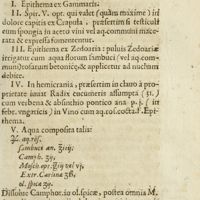 I. Epithema ex Gammaris.
II. Spir. V. opt. qui valet (quàm maximè) in
dolore capitis ex Crapula; præsertim si testiculi eum
spongia in aceto vini vel aq. communi mace-
rata & expressa fomententur.
III. Epithema ex Zedoaria: pulvis Zedoariæ
irrigatur cum aqua florum sambuci (vel aq. com-
muni) rosatum betonicę, & applicetur ad nucham
debite.
IV. In hemicrania, præsertim in clauo à pro-
prietate iuuat Radix cucumeris assumpta (51)
cum verbena & absinthio pontico ana p. j. (in
febr. vngaricis) in Vino cum aq. ros. costa. f. Epi-
thema.
V. Aqua composita talis:
℞. aq. ros.
sambuci an.
Camph.
Ol. spicæ
Dissolve Camphor. in ol. spicæ, postea omnia M.